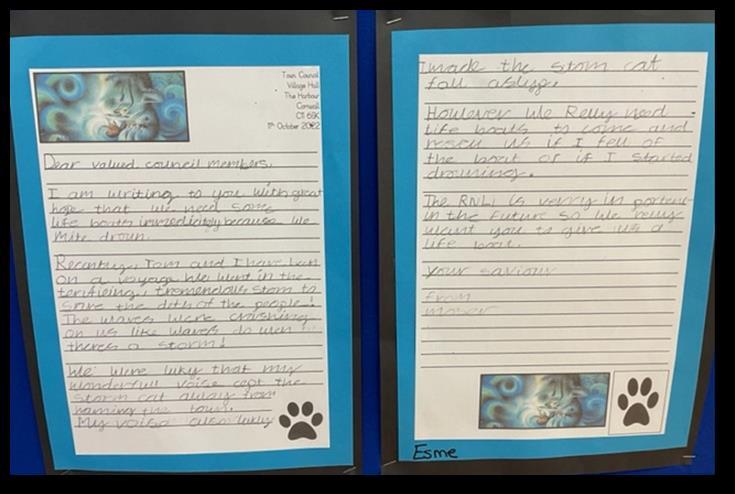 Town Council
Village Hall
The Harbour
Cornwall
11th October 2022
Dear valued council members,
I am writing to you with great
hope that we need some
life boats immediatley because we
mite droun.
Recentley, Tom and I have ben
on a voyage. We went in the
terrifieing, tremendous storm to
save the deths of the people!
The waves were crashing
on us like waves do wen
theres a storm!
We were luky that my
wonderfull voise cept the
storm cat away from
haming the town.
My voise also lukly
I made the storm cat
fall aslyp.
However we Relly need
life boats to come and
rescu us if I fell of
the boat or if I started
drowning.
The RNLI is verry in portent
in the future so we relly
want you to give us a
life boat.
your saviour
from
mowser
Esme